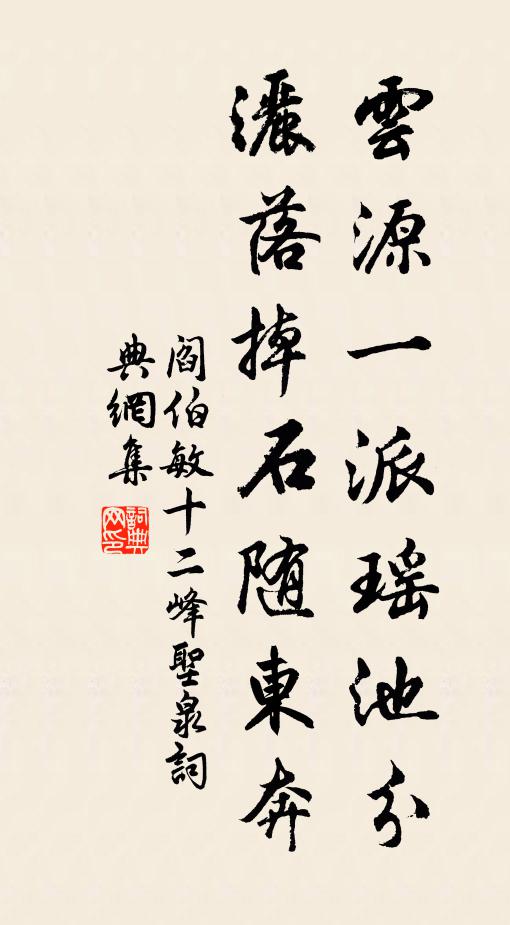 雲源一派瑶池分
灑落掉石随東奔
閻伯敏十二峰聖泉詞
典網集
詞典网印